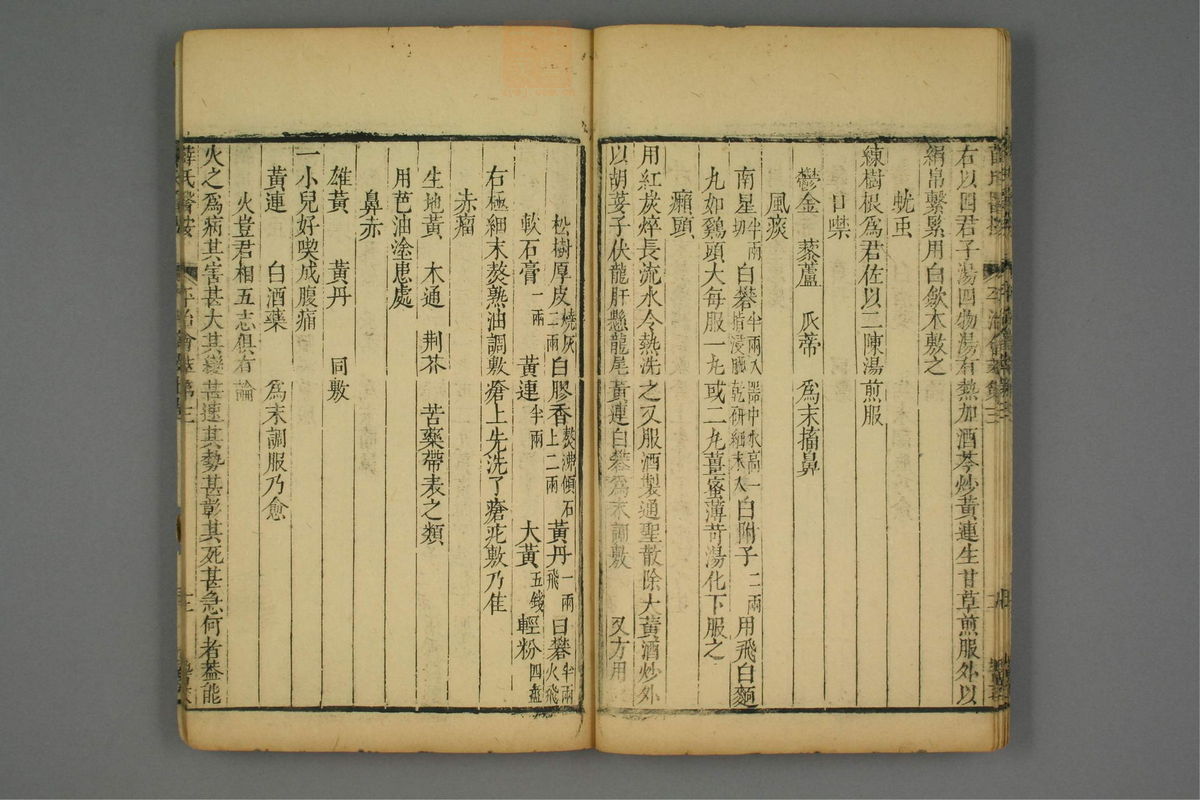 右以四君子湯四物湯有熱加酒芩炒黃連生甘草煎服外以
絹帛繫緊用白歛末敷之
蚘虫
練樹根爲君佐以二陳湯煎服
口噤
鬱金 藜蘆 瓜蒂 爲末搐鼻
風痰
南星半兩切白礬半兩入器中水高一指浸曬乾研細末入白附子二兩用飛白麵
丸如雞頭大每服一丸或二丸薑蜜薄苛湯化下服之
癩頭
用紅炭焠長流水令熱洗之又服酒製通聖散除大黃酒炒外
以胡荽子伏龍肝懸龍尾黃連白礬爲末調敷 又方用
松樹厚皮燒灰二兩白膠香熬沸傾石上二兩黃丹一兩飛白礬半兩火飛
軟石膏一兩 黃連半兩 大黃五錢輕粉四盞
右極細末熬熟油調敷瘡上先洗了瘡疕敷乃佳
赤瘤
生地黃 木通 荆芥 苦藥帶表之類
用芭油塗患處
鼻赤
雄黃 黃丹 同敷
一小兒好喫成腹痛
黃連 白酒藥 爲末調服乃愈
火豈君相五志俱有論
火之爲病其害甚大其變甚速其勢甚彰其死甚急何者葢能
薛氏醫按 平治會萃第三